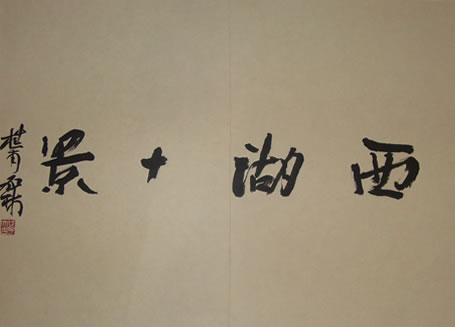 西湖十景